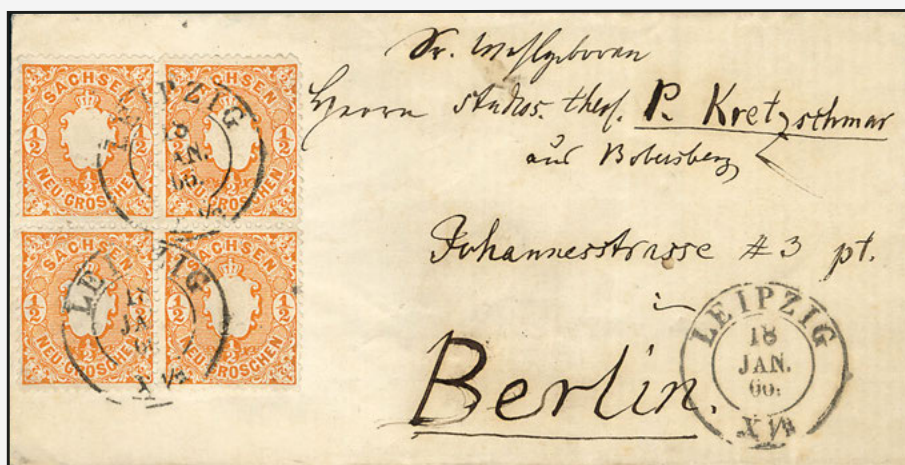 SACHSEN
1/2 1/2
1/2
NEU-GROSCHEN
SACHSEN
1/2 1/2
1/2
NEU-GROSCHEN
SACHSEN
1/2 1/2
1/2
NEU-GROSCHEN
SACHSEN
1/2 1/2
1/2
NEU-GROSCHEN
LEIPZIG
18
JAN.
66.
LEIPZIG
Sr. Wohlgeboren
Herrn studios. theol. P. Kretzschmar
aus Bobersberg
Johannesstrasse #3 pt.
in
Berlin.
LEIPZIG
18
JAN.
66.